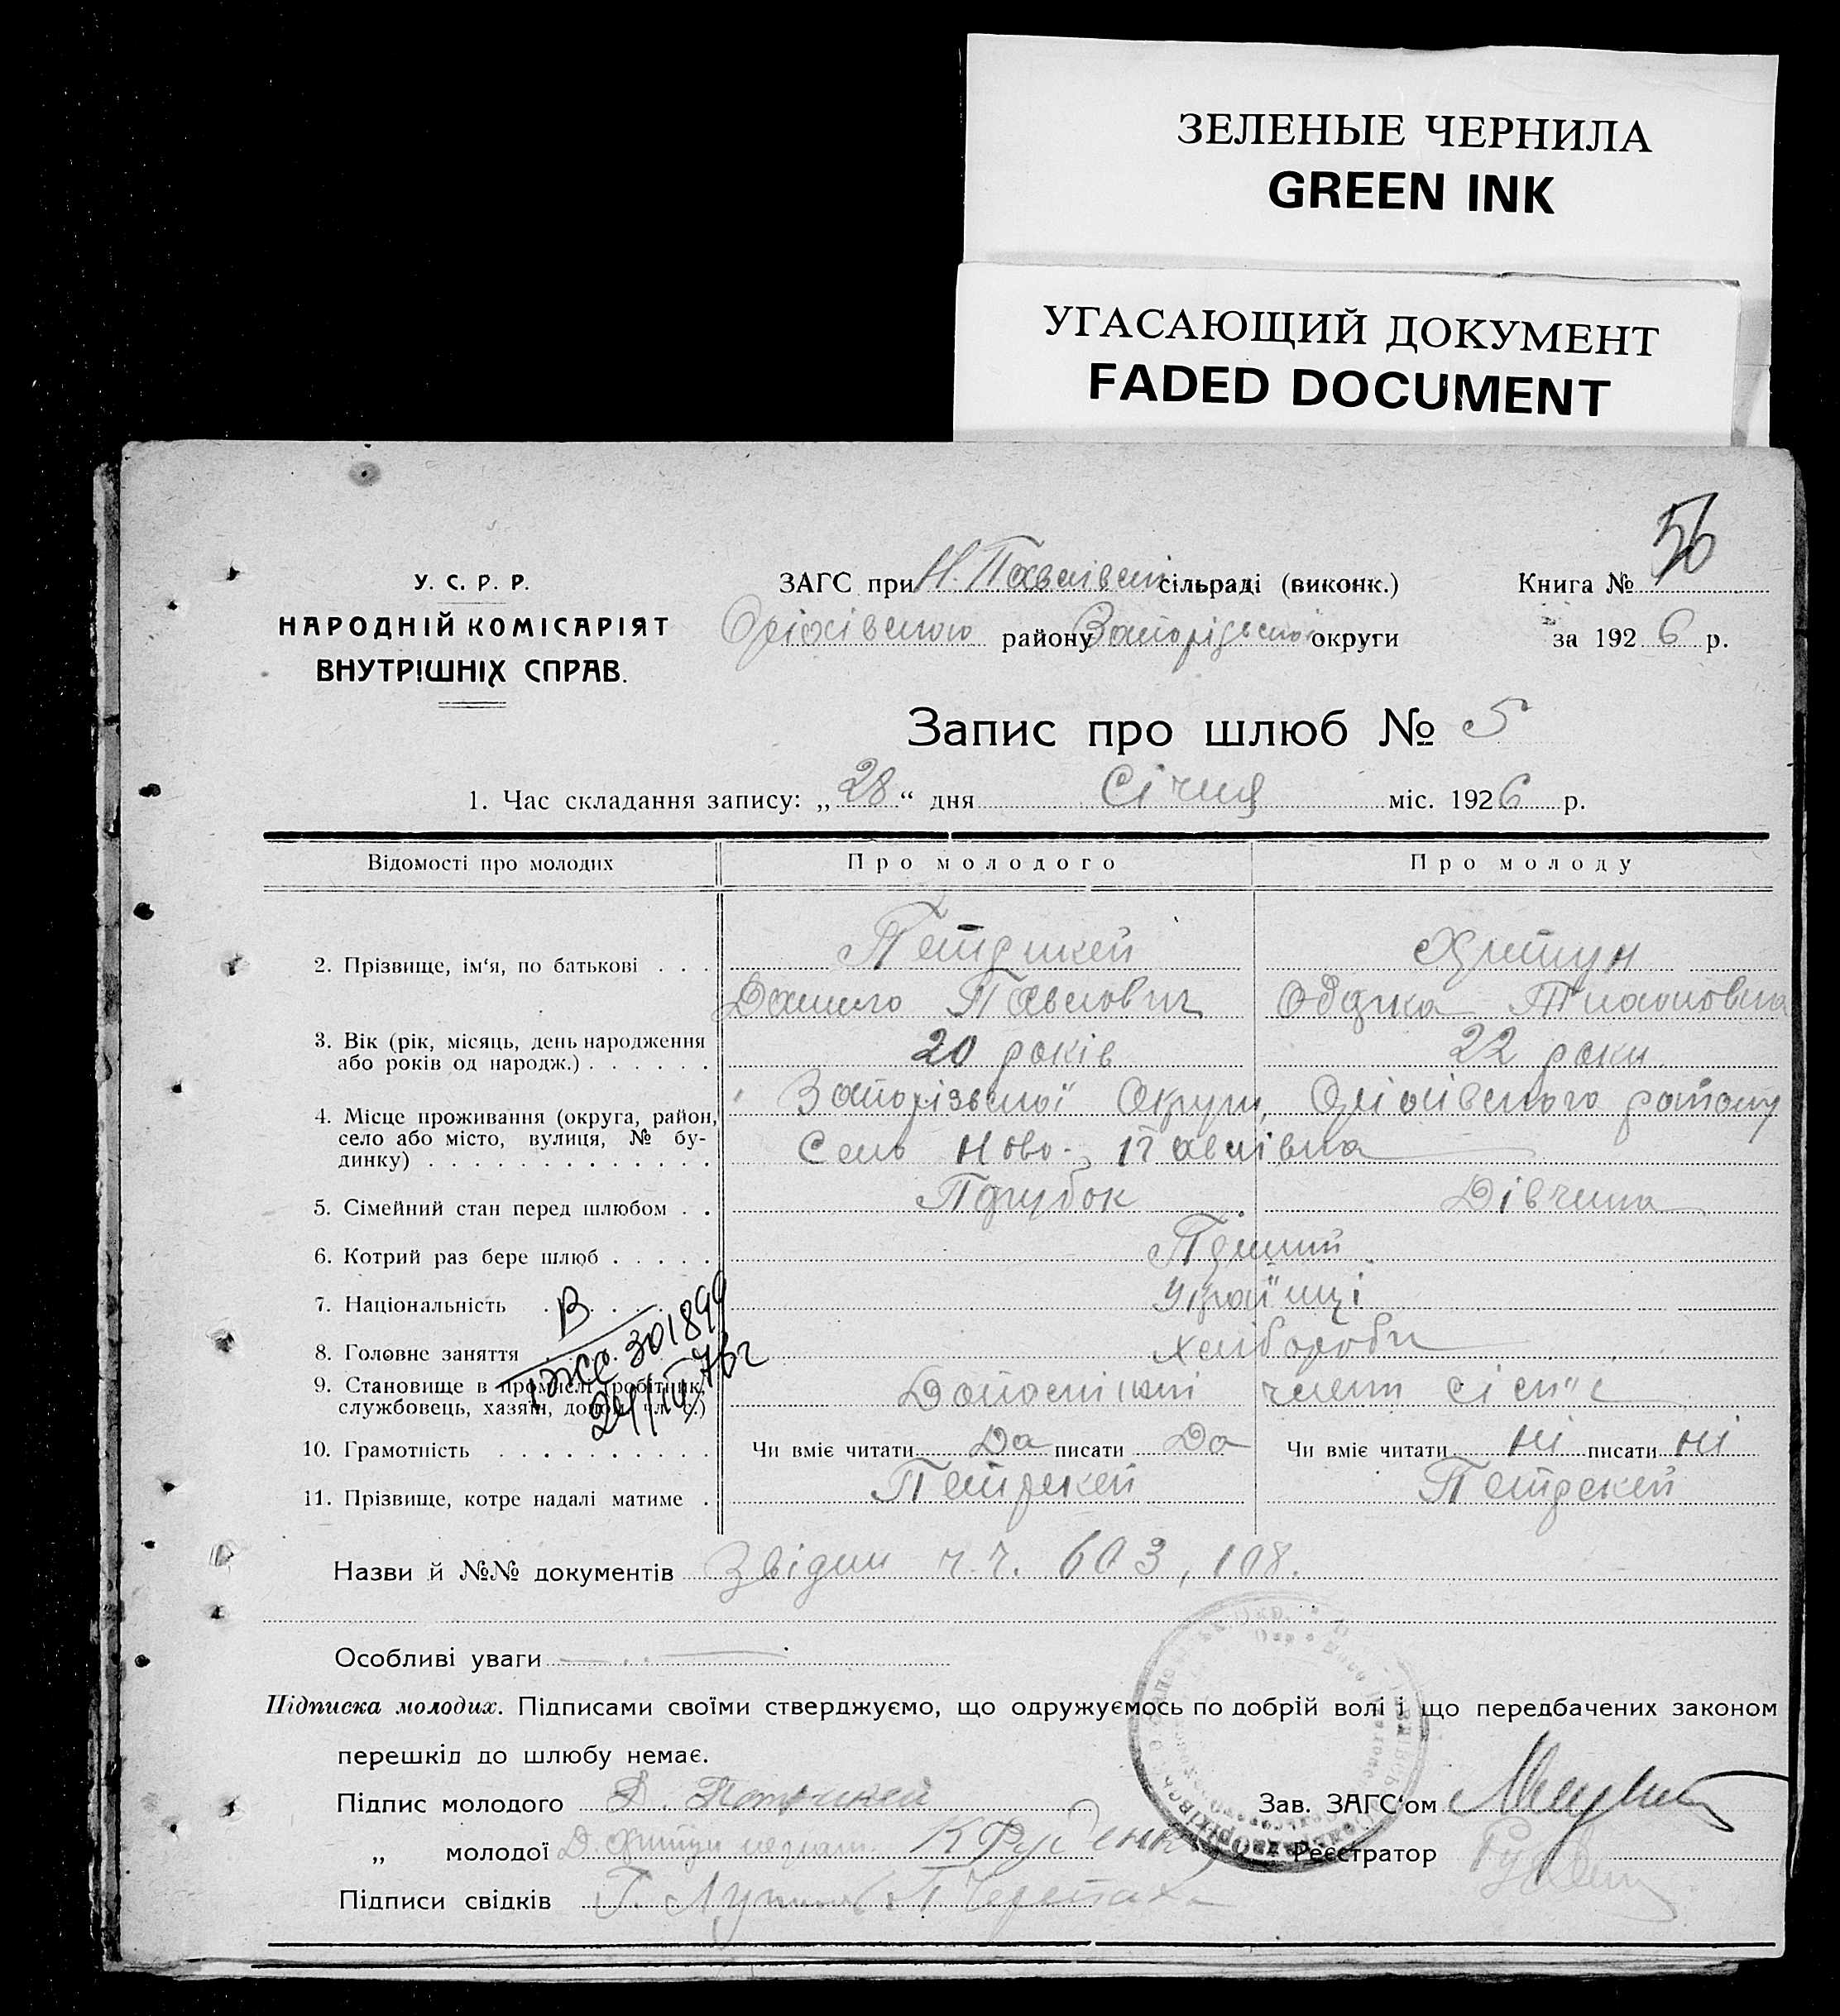 ЗЕЛЕНЫЕ ЧЕРНИЛА
GREEN INK
УГАСАЮЩИЙ ДОКУМЕНТ
FADED DOCUMENT
56
У. С. Р. Р.
НАРОДНІЙ КОМІСАРІЯТ
ВНУТРІШНІХ СПРАВ.
ЗАГС при Н. Павлівській сільраді (виконк.) Книга №
Оріхівського району Запорізької округи за 1926 р.
Запис про шлюб № 5
1. Час складання запису: „28“ дня Січня міс. 1926 р.
Відомості про молодих Про молодого Про молоду
2. Прізвище, ім‘я, по батькові . . . Петрикей
Данило Павлович
3. Вік (рік, місяць, день народження
або років од народж.) . . . . . . 20 років 22 роки
4. Місце проживання (округа, район, Запорізької Округи, Оріхівського району
село або місто, вулиця, № бу- Село Ново-Павлівка
динку) . . . . . . . . . . . . .
5. Сімейний стан перед шлюбом . . Парубок Дівчина
6. Котрий раз бере шлюб . . . . . Перший
7. Національність . . . . . Українці
8. Головне заняття Хлібороби
9. Становище в промислі (робітник,
службовець, хазяїн, допом. чл. с.) члени сім'ї
В
301899
24/IV 76г
10. Грамотність . . . . . . . . . . Чи вміє читати Да писати Да Чи вміє читати Ні писати Ні
11. Прізвище, котре надалі матиме . Петрекей Петрекей
Назви й №№ документів Звідки ч.ч. 603, 108.
Особливі уваги
Підписка молодих. Підписами своїми стверджуємо, що одружуємось по добрій волі і що передбачених законом
перешкід до шлюбу немає.
Підпис молодого Д. Петрикей Зав. ЗАГС‘ом
„ молодої К Руденко Реєстратор
Підписи свідків